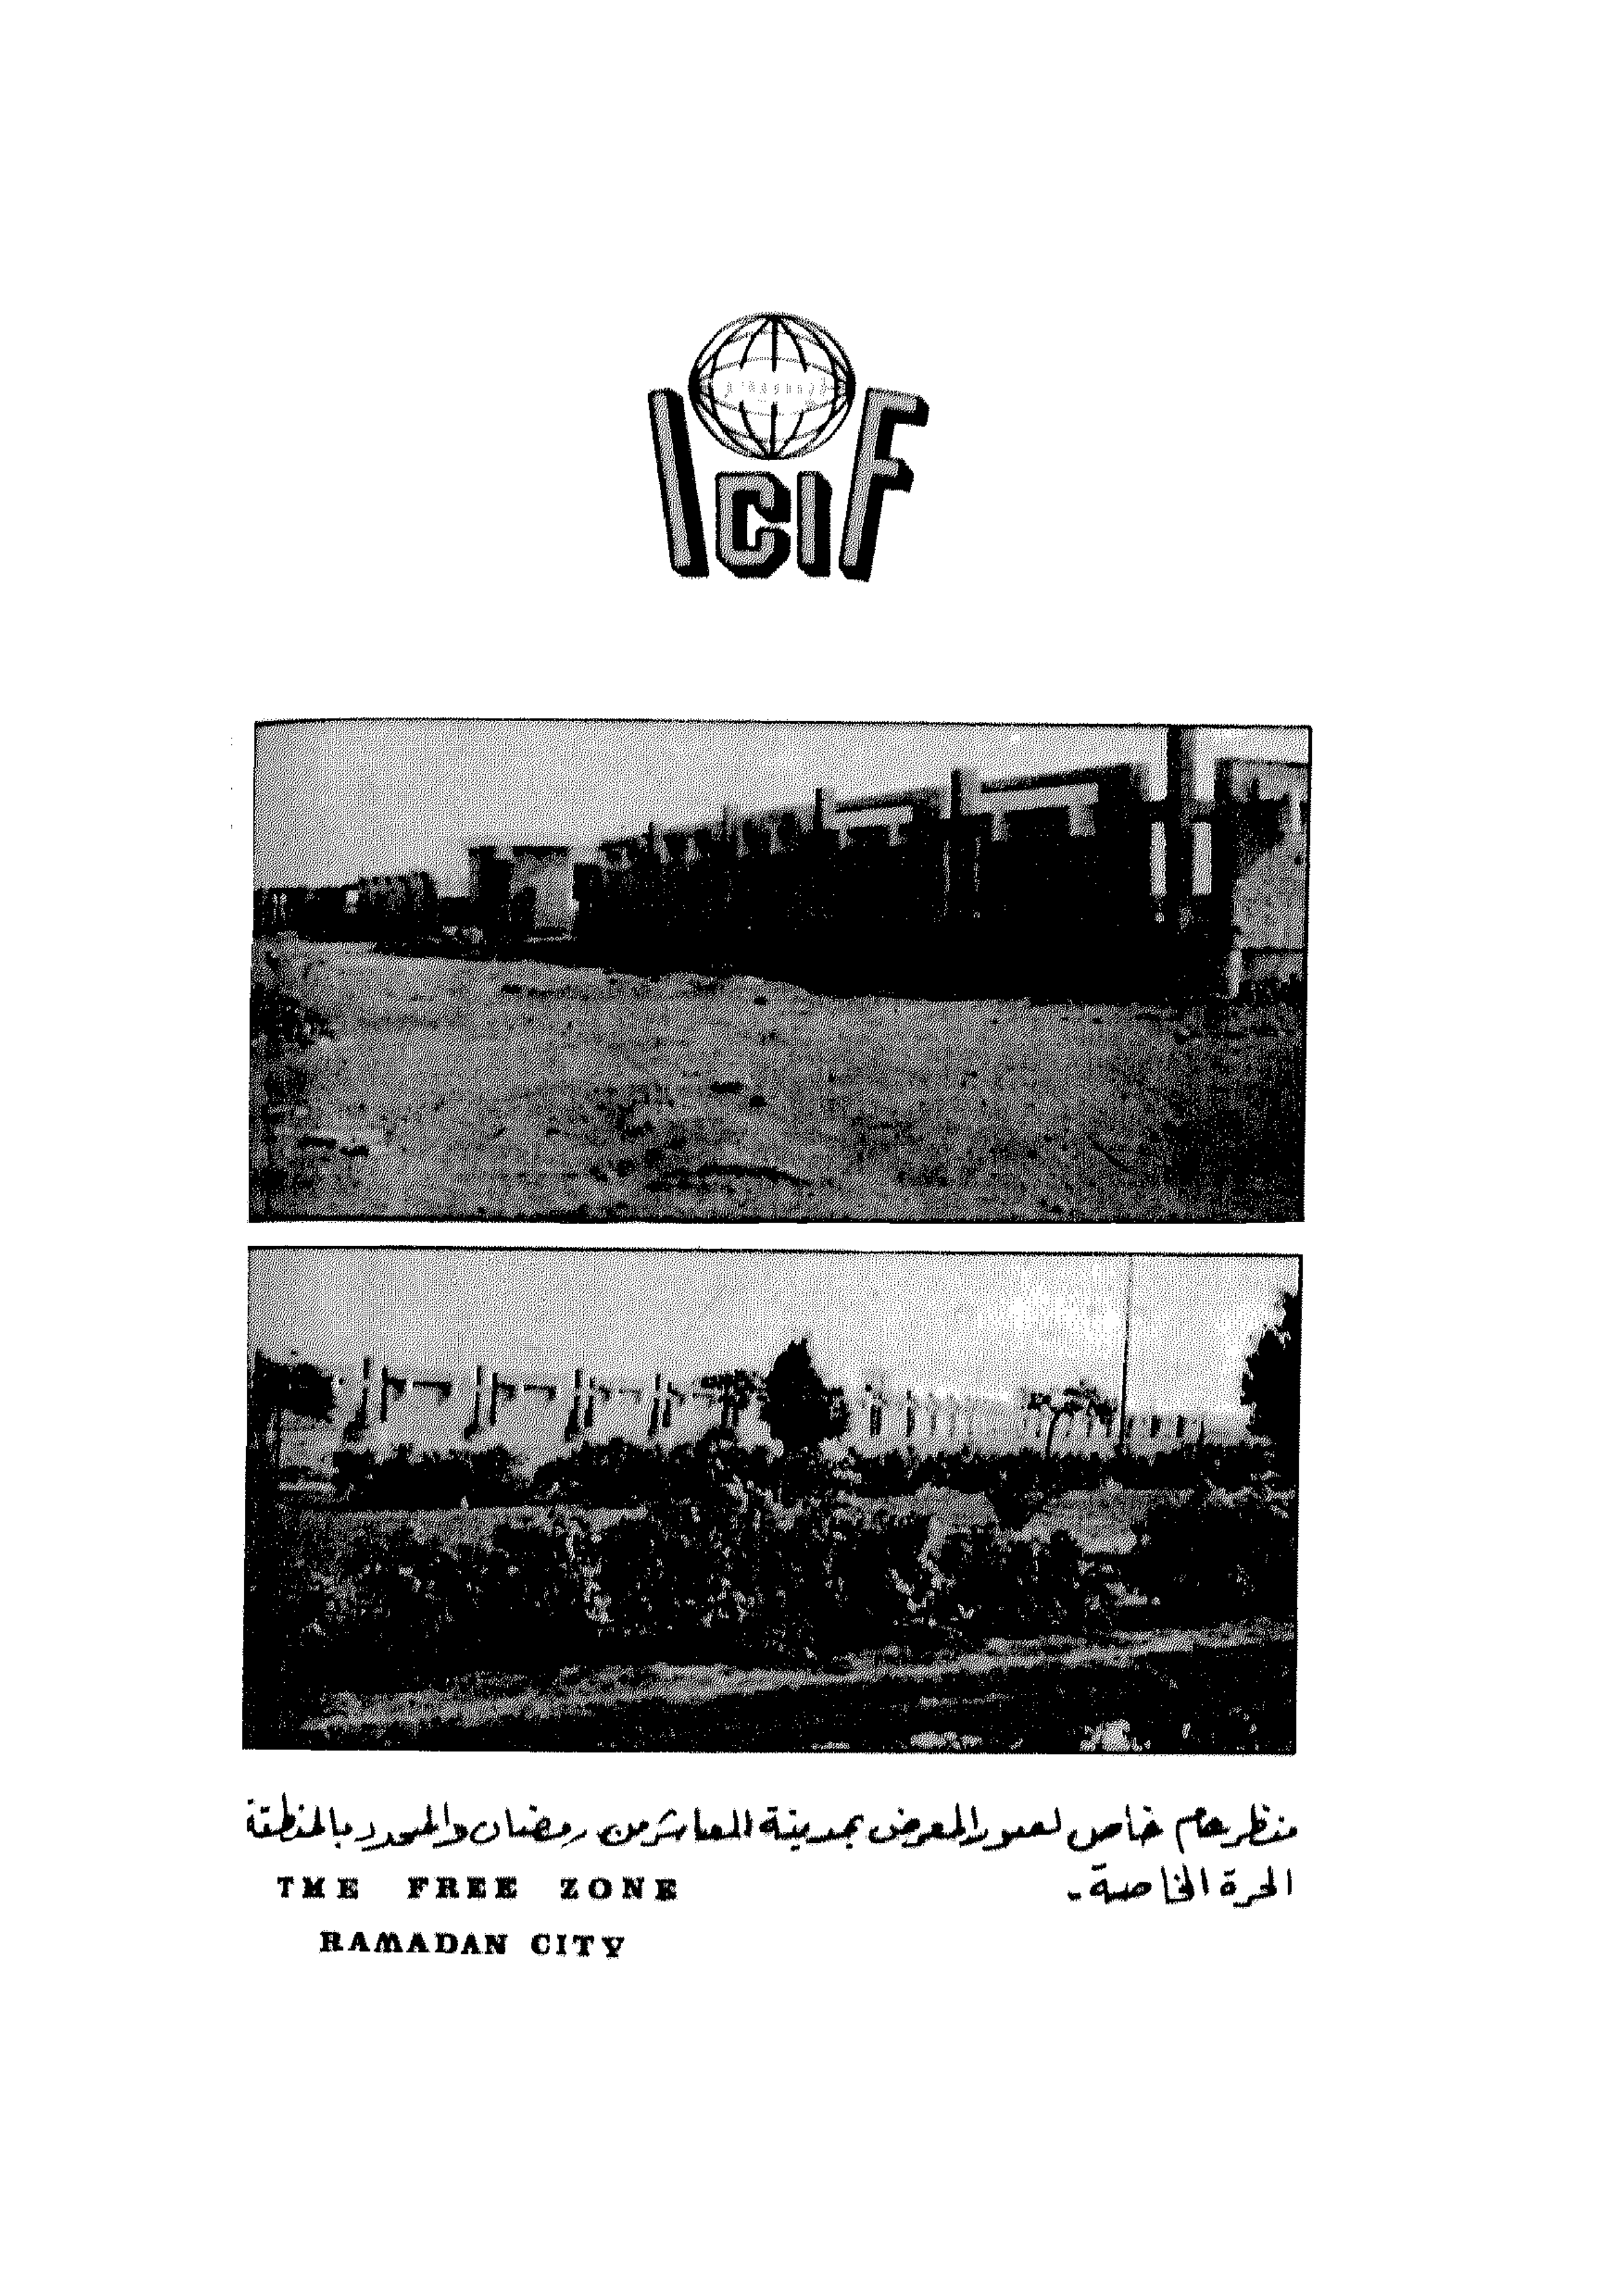 ICIF
منظر عام خاص لصور المعرض بمدينة العاشر من رمضان والمحدد بالمنطقة
الحرة الخاصة -
THE FREE ZONE
RAMADAN CITY